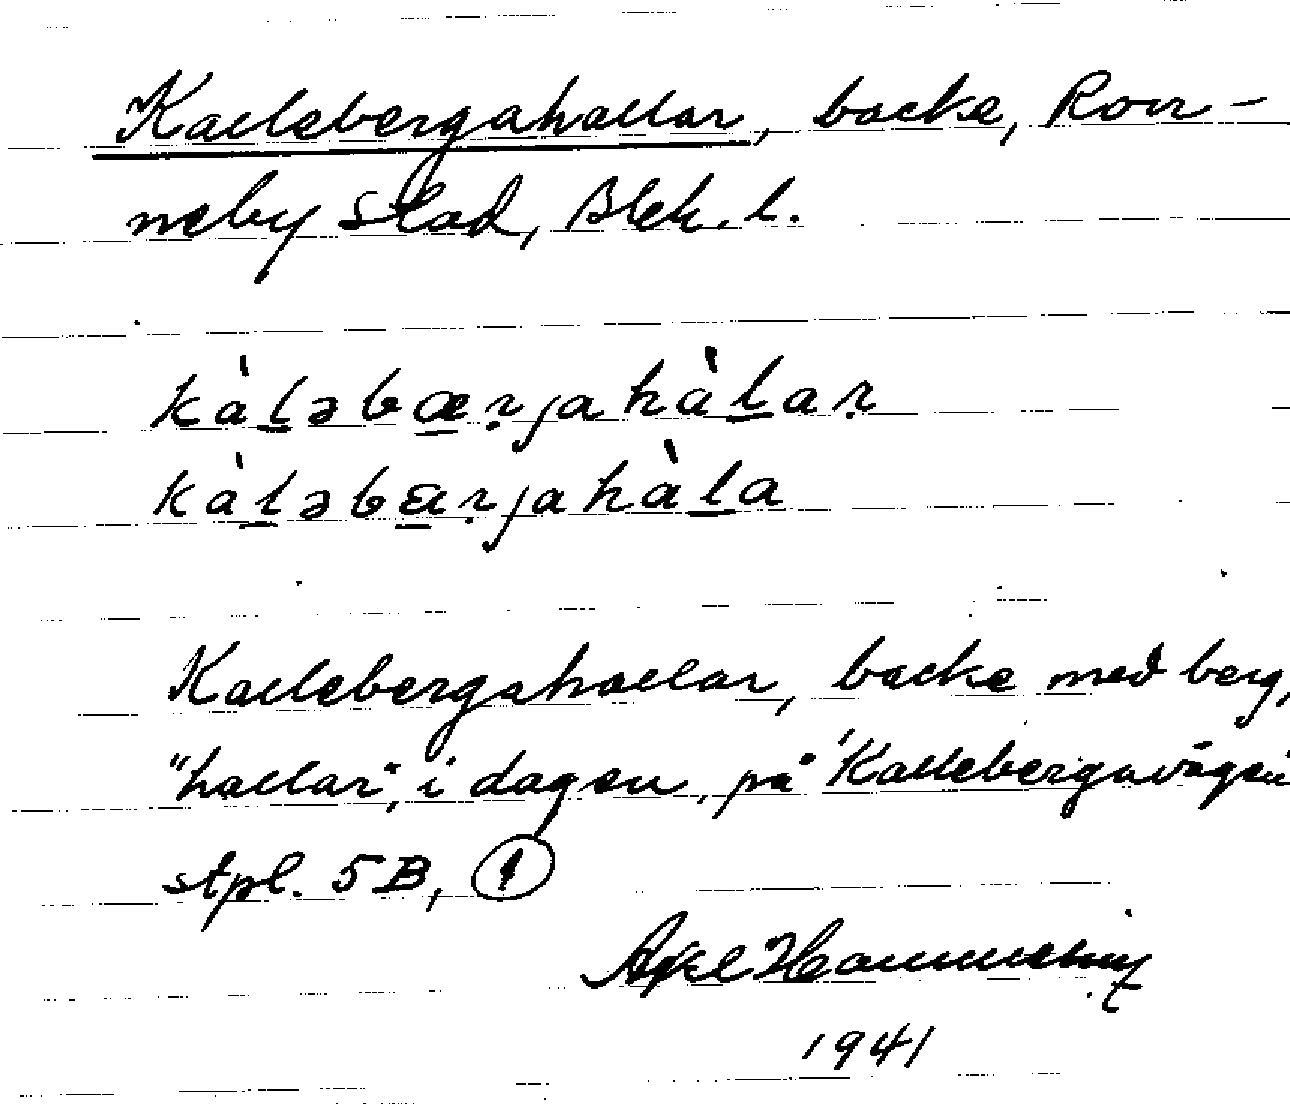 Kallebergahallar, backe, Ron-
neby stad, Blek. l.
kàl̲əbæ̲ṛjahàl̲aṛ
kàl̲əbæ̲ṛjahàl̲a
Kallebergahallar, backe med berg,
"hallar", i dagen, på Kallebergavägen
stpl. 5B, 1
Axel
1941